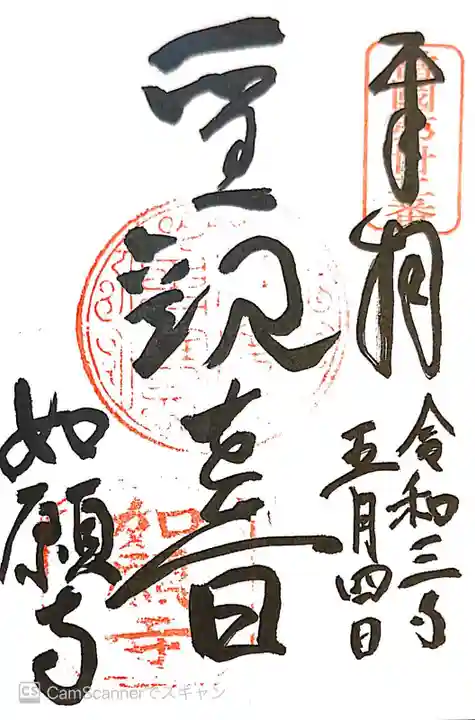 奉拝
令和三年
五月四日
聖観音
如願寺
如願寺
CS CamScannerでスキャン